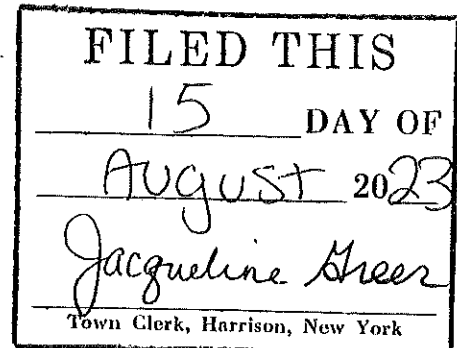 FILED THIS
15 DAY OF
August 2023
Jacqueline Greer
Town Clerk, Harrison, New York